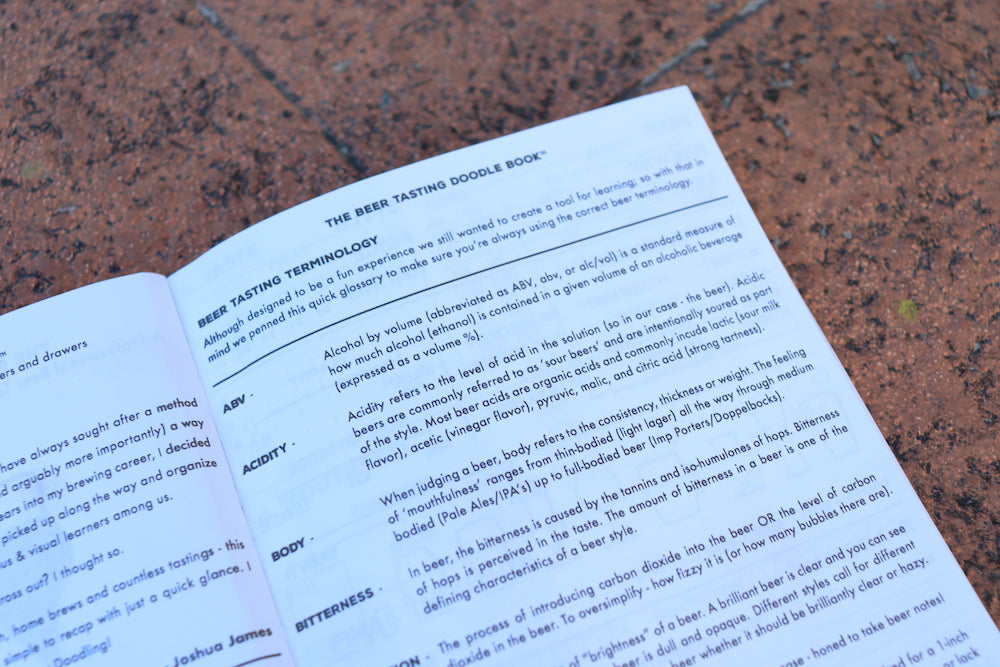 ers and drawers
have always sought after a method
d arguably more importantly) a way
ears into my brewing career, I decided
picked up along the way and organize
us & visual learners among us.
ross out? I thought so.
, home brews and countless tastings - this
simple to recap with just a quick glance. I
Doodling!
Joshua James
THE BEER TASTING DOODLE BOOK™
BEER TASTING TERMINOLOGY
Although designed to be a fun experience we still wanted to create a tool for learning; so with that in
mind we penned this quick glossary to make sure you're always using the correct beer terminology.
ABV -
Alcohol by volume (abbreviated as ABV, abv, or alc/vol) is a standard measure of
how much alcohol (ethanol) is contained in a given volume of an alcoholic beverage
(expressed as a volume %).
ACIDITY -
Acidity refers to the level of acid in the solution (so in our case - the beer). Acidic
beers are commonly referred to as 'sour beers' and are intentionally soured as part
of the style. Most beer acids are organic acids and commonly incude lactic (sour milk
flavor), acetic (vinegar flavor), pyruvic, malic, and citric acid (strong tartness).
BODY -
When judging a beer, body refers to the consistency, thickness or weight. The feeling
of 'mouthfulness' ranges from thin-bodied (light lager) all the way through medium
bodied (Pale Ales/IPA's) up to full-bodied beer (Imp Porters/Doppelbocks).
BITTERNESS -
In beer, the bitterness is caused by the tannins and iso-humulones of hops. Bitterness
of hops is perceived in the taste. The amount of bitterness in a beer is one of the
defining characteristics of a beer style.
ION -
The process of introducing carbon dioxide into the beer OR the level of carbon
dioxide in the beer. To oversimplify - how fizzy it is (or how many bubbles there are).
of "brightness" of a beer. A brilliant beer is clear and you can see
beer is dull and opaque. Different styles call for different
beer whether it should be brilliantly clear or hazy.
- honed to take beer notes!
for a 1-inch
lack